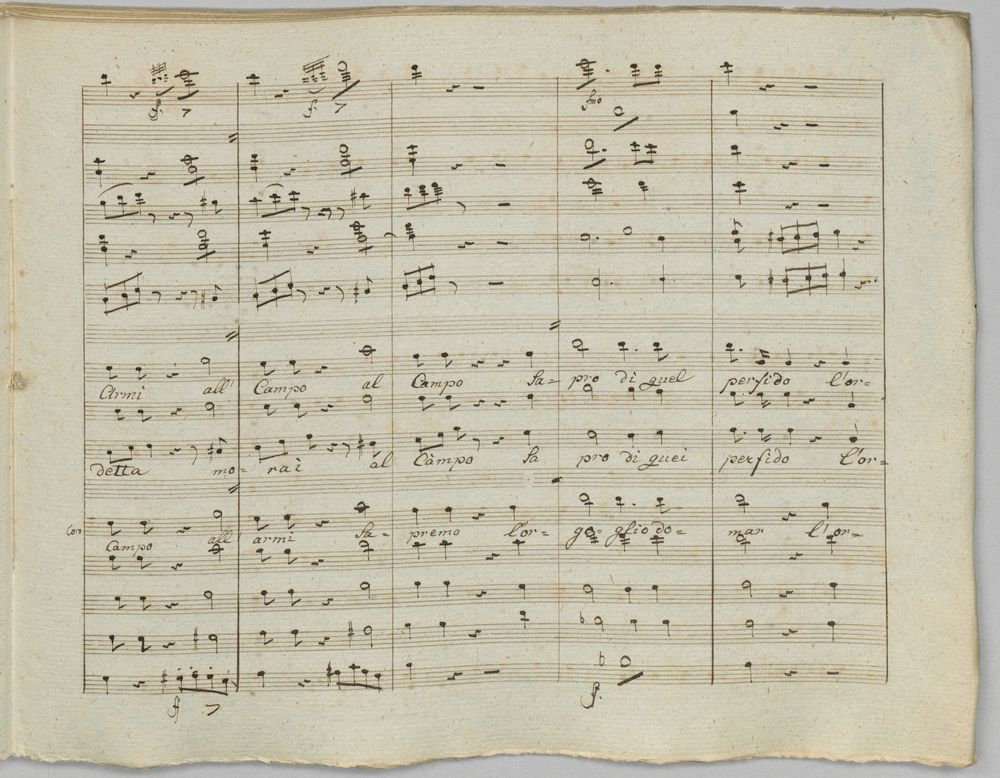 f. > f. > fmo
Armi all' Campo al Campo Sa= pro di quel perfido l'or=
detta mo= rai al Càmpo Sa pro di quei perfido l'or=
Coro Campo all' armi Sa= premo l'or= go= glio do= mar l'or=
f. > f.